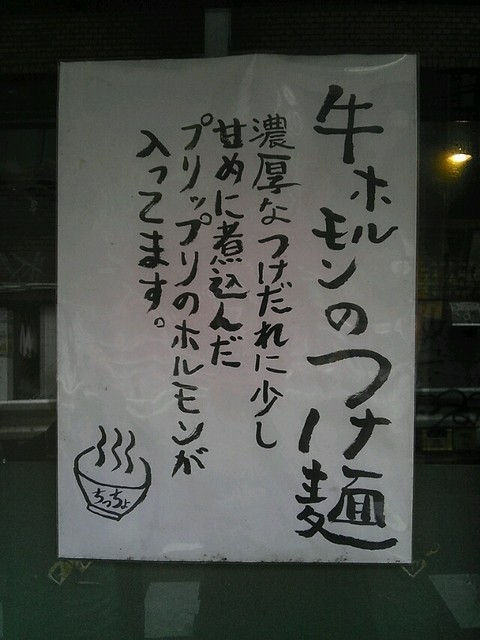 牛ホルモンのつけ麺
濃厚なつけだれに少し
甘めに煮込んだ
プリップリのホルモンが
入ってます。
ちっちょ